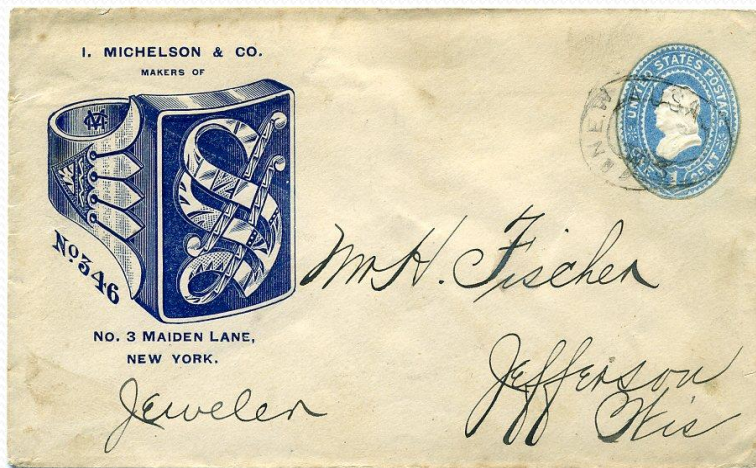 I. MICHELSON & CO.
MAKERS OF
No. 346
NO. 3 MAIDEN LANE,
NEW YORK.
UNITED STATES POSTAGE
ONE CENT
NEW
U.S.A.
Mr H. Fischer
Jefferson
Wis
Jeweler